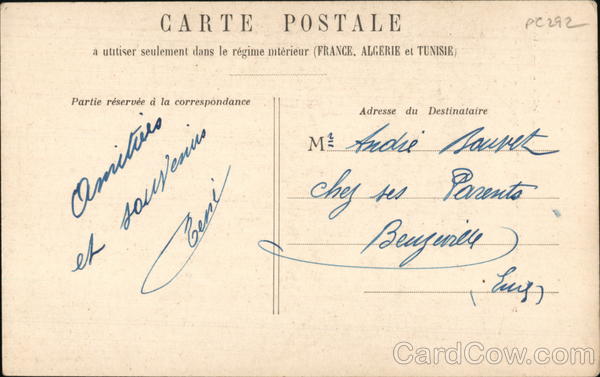 PC292
CARTE POSTALE
à utiliser seulement dans le régime intérieur (FRANCE, ALGÉRIE et TUNISIE)
Partie réservée à la correspondance
Amitiés
et souvenirs
René
Adresse du Destinataire
Mr André Bouvet
chez ses Parents
Beuzeville
(Eure)
CardCow.com